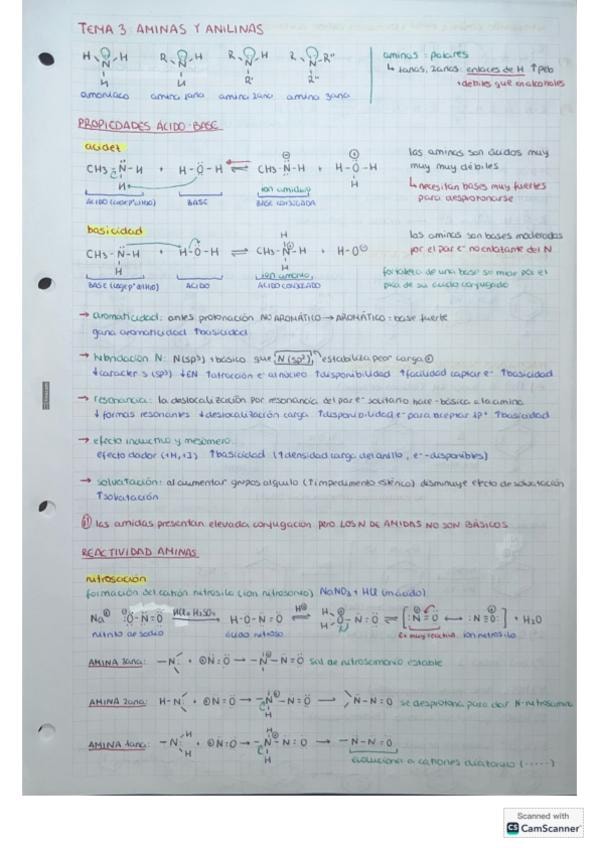 TEMA 3: AMINAS Y ANILINAS
H N H H
R N H H
R N H R'
R N R'' R'
amoniaco amina 1aria amina 2aria amina 3aria
aminas: polares
↳ 1arias, 2arias: enlaces de H ↑peb
+débiles que en alcoholes
PROPIEDADES ÁCIDO-BASE
acidez
CH3-N-H + H-O-H ⇌ CH3-N-H + H-O-H
H H
ÁCIDO BASE ion amiduro BASE CONJUGADA
las aminas son ácidos muy
muy muy débiles
↳ necesitan bases muy fuertes
para desprotonarse
basicidad
CH3-N-H + H-O-H ⇌ CH3-N-H + H-O⊖
H H H
BASE ÁCIDO ion amonio, ÁCIDO CONJUGADO
las aminas son bases moderadas
por el par e- no enlazante del N
fortaleza de una base se mide por el
pka de su ácido conjugado
→ aromaticidad: antes protonación NO AROMÁTICO → AROMÁTICO = base fuerte
gana aromaticidad ↑basicidad
→ hibridación N: N(sp3) +básico que N(sp2) estabiliza peor carga ⊕
↓carácter s (sp3) ↓EN ↑atracción e- al núcleo ↑disponibilidad ↑facilidad captar e- ↑basicidad
→ resonancia: la deslocalización por resonancia del par e- solitario hace -básica a la amina
↓ formas resonantes ↓deslocalización carga ↑disponibilidad e- para aceptar 1P+ ↑basicidad
→ efecto inductivo y mesómero:
efecto dador (+M, +I) ↑basicidad (↑densidad carga del anillo, e- -disponibles)
→ solvatación: al aumentar grupos alquilo (↑impedimento estérico) disminuye efecto de solvatación
↑solvatación
las amidas presentan elevada conjugación pero LOS N DE AMIDAS NO SON BÁSICOS
REACTIVIDAD AMINAS
nitrosación
formación del catión nitrosilo (ion nitrosonio) NaNO2 + HCl (in ácido)
Na⊕ ⊖O-N=O HCl o H2SO4 H-O-N=O H⊕ ⇌ H-O-N=O ⇌ [:N=O ↔ :N≡O:] + H2O
H
nitrito de sodio ácido nitroso Es muy reactivo ion nitrosilo
AMINA 3aria: -N + ⊕N=O → -N-N=O sal de nitrosamonio estable
AMINA 2aria: H-N + ⊕N=O → -N-N=O → N-N=O se desprotona para dar N-nitrosamina
H
AMINA 1aria: -N H H + ⊕N=O → -N-N=O → -N-N=O
H H
evoluciona a cationes diazonio (·····)
Scanned with
CS CamScanner